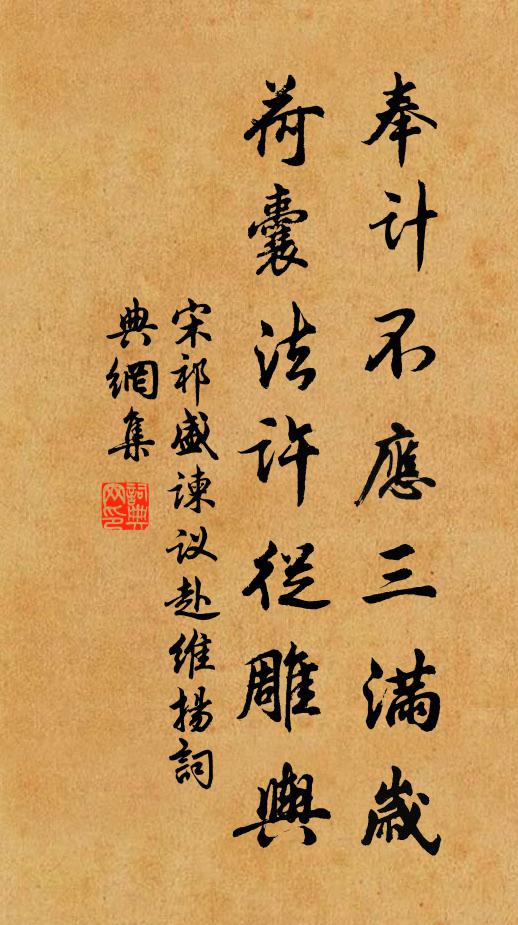 奉计不應三滿歲
荷囊法許從雕輿
宋祁盛谏议赴维揚詞
典網集
詞典网印